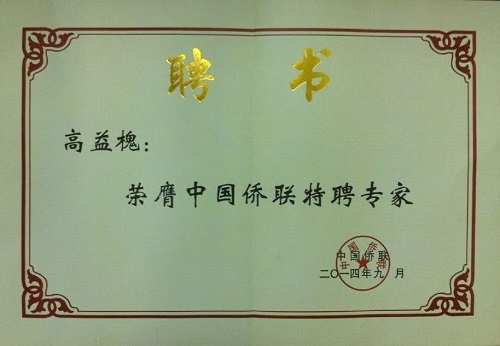 聘 书
高益槐：
荣膺中国侨联特聘专家
中国侨联
二〇一四年九 月